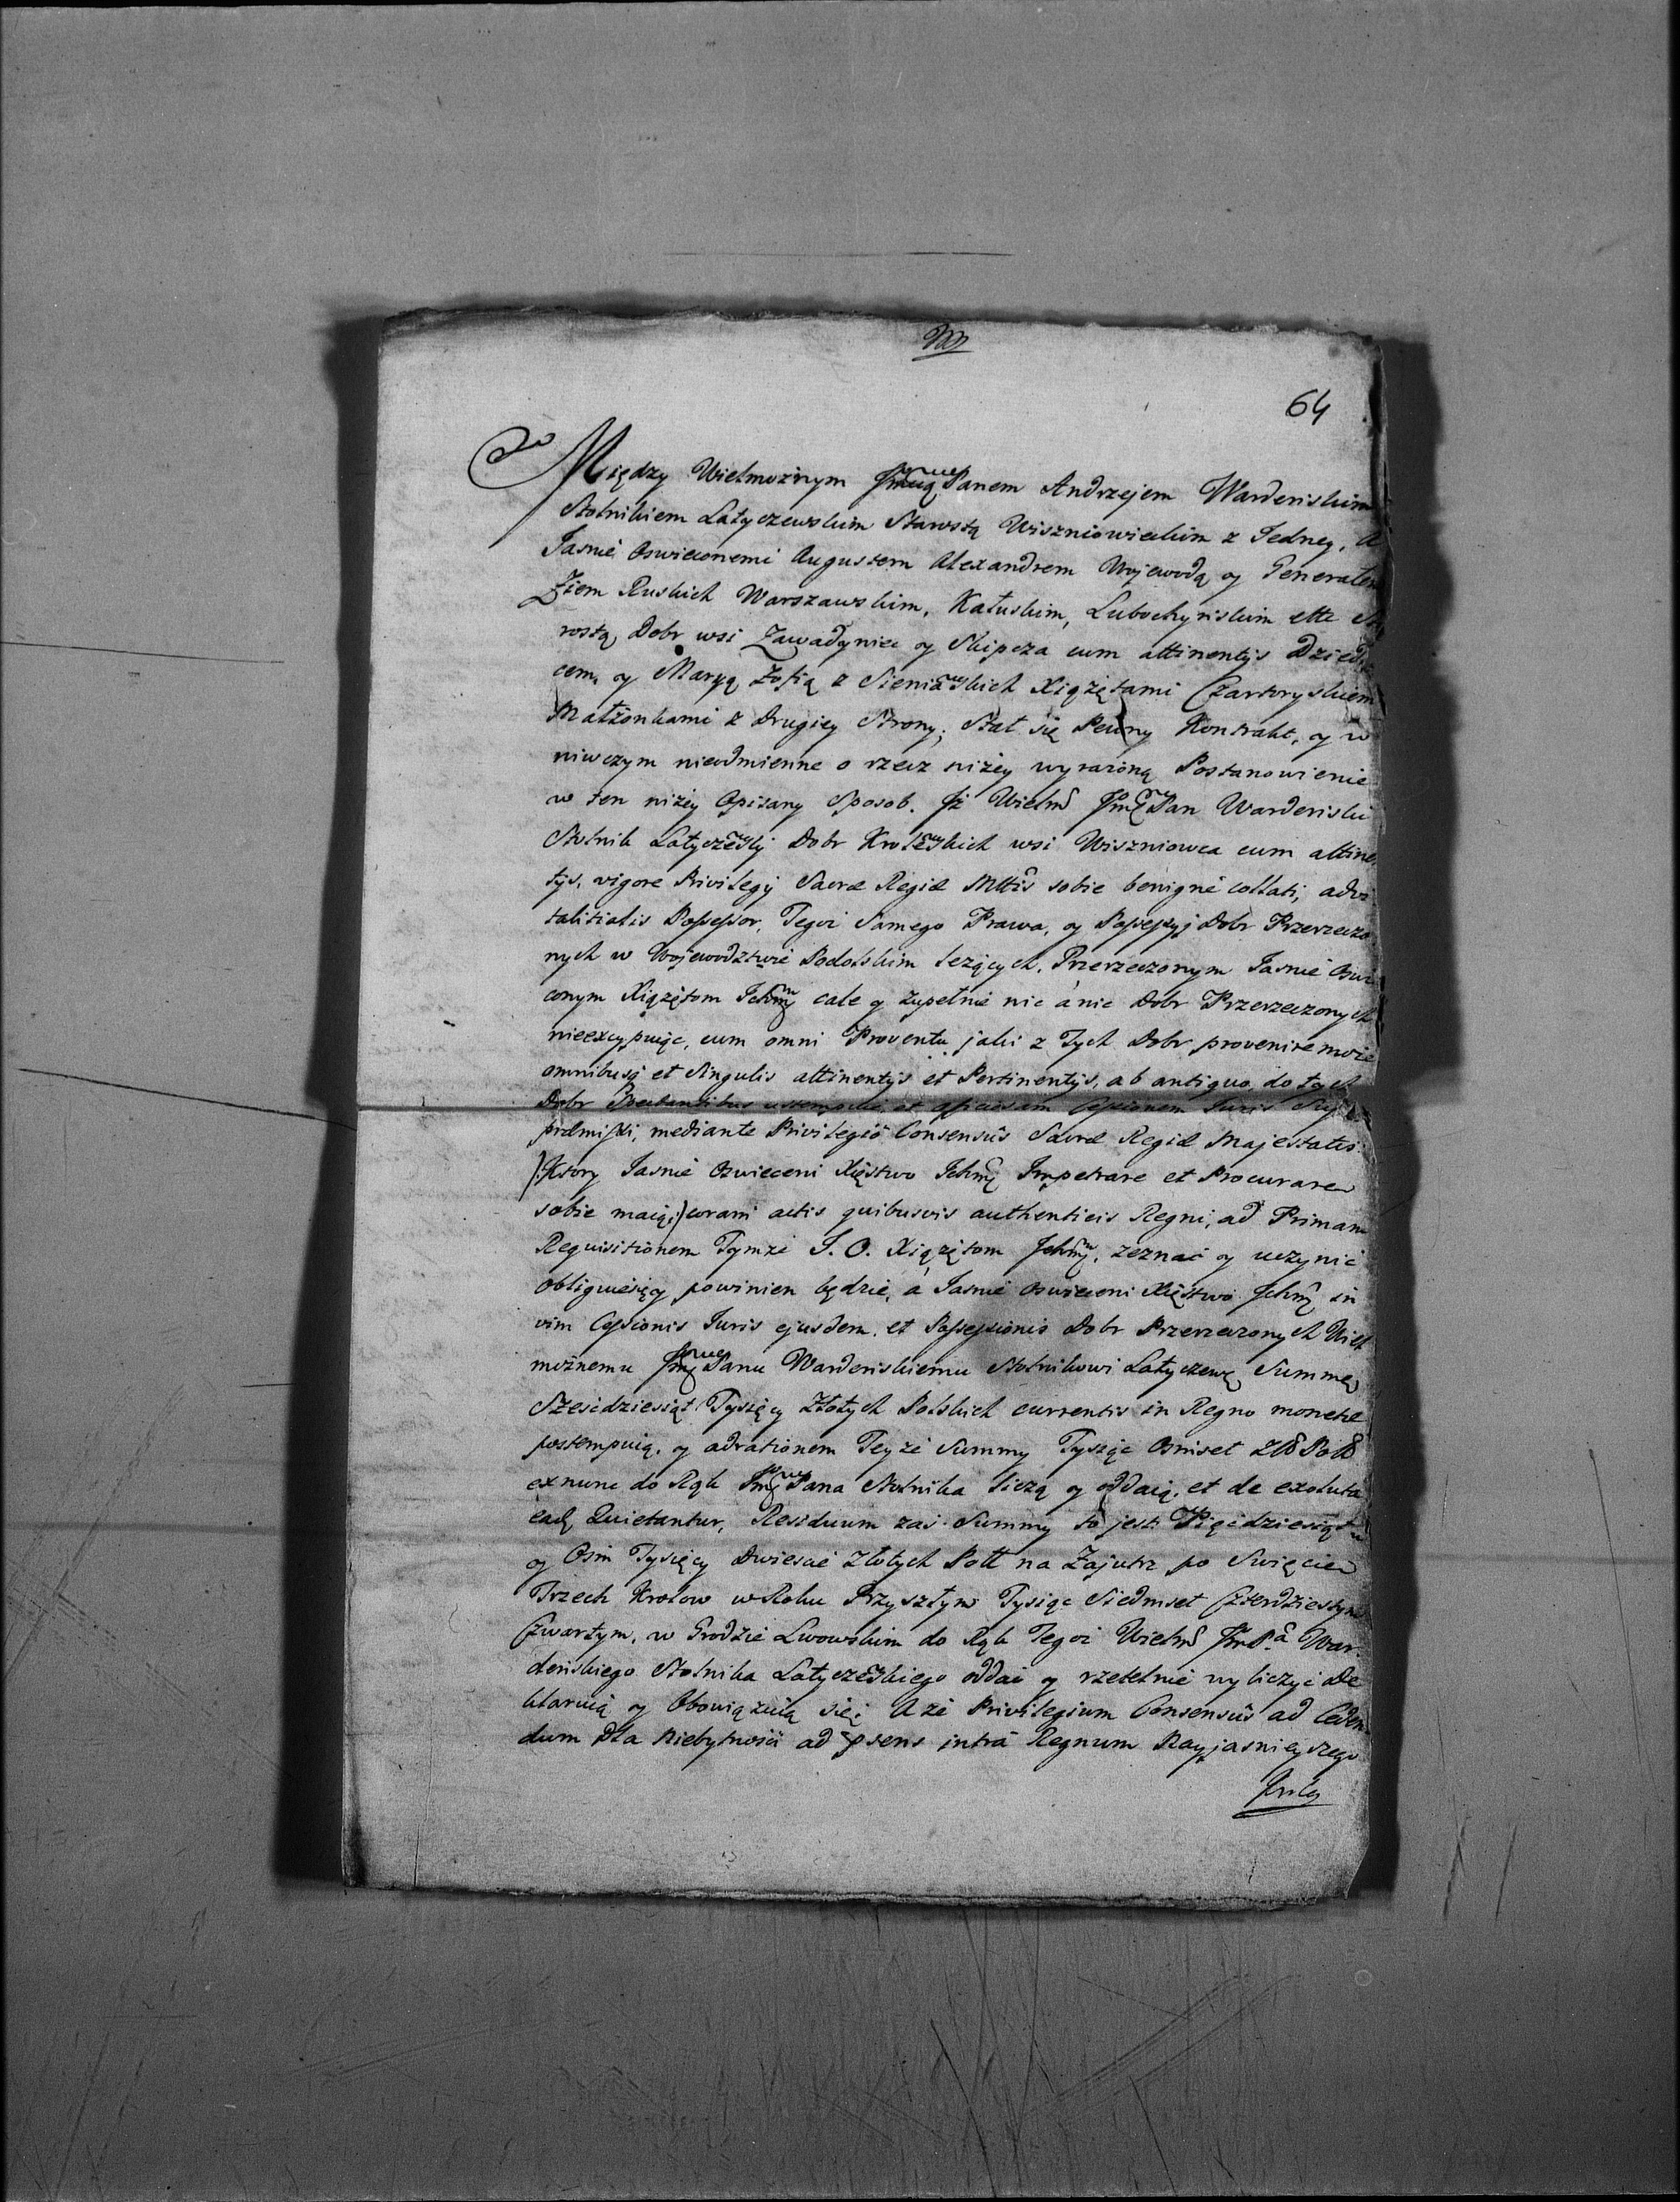 64
Między Wielmożnym Jmcią Panem Andrzejem Wardenskim
Stolnikiem Latyczewskim Starostą Wiszniowieckim z Jedney, A
Jasnie Oswieconemi Augustem Alexandrem Wojewodą y Generałem
Ziem Ruskich Warszawskim, Kałuskim, Lubochynskim ette Sta
rostą, Dobr wsi Zawadyniec y Skipcza cum attinentys Dziedzi
cem, y Maryą Zofią z Sieniawskich Xiążętami Czartoryskiemi
Małżonkami z Drugiey Strony; Stał się Pewny Kontrakt, y w
niwczym nieodmienne o rzecz niżey wyrażoną Postanowienie
w ten niżey Opisany Sposob. Iż Wielmo Jmc Pan Wardenski
Stolnik Latyczewskj Dobr Krolewskich wsi Wiszniowca cum attinen
tys, vigore Privilegij Sacræ Regiæ Mttis sobie benigné collati, advi
talitialis Possessor, Tegoż Samego Prawa, y Possessyj Dobr Przerzeczo
nych w Wojewodztwie Podolskim leżących, Przerzeczonym Jasnie Oswie
conym Xiążętom Ichmć całe y zupełnie nic á nic Dobr Przerzeczonych
nieexcypuiąc, cum omni Proventu jaki z Tych Dobr provenire może
omnibusq et Singulis attinentijs et Pertinentijs, ab antiquo do tych
Dobr Spectantibus ustempuie, et officiosam Cessionem Juris Sui
præmissi, mediante Privilegió Consensûs Sacræ Regiæ Majestatis
(Ktory Jasnie Oswieceni Xięstwo Ichmć Impetrare et Procurare
sobie maią;) coram actis quibusvis authenticis Regni, ad Primam
Requisitionem Tymże J. O. Xiążętom Ichmć, zeznać y uczynić
obliguiesię y powinien będzie, á Jasnie Oswieceni Xięstwo Ichmć in
vim Cessionis Juris ejusdem, et Possessionis Dobr Przerzeczonych Wiel
możnemu Jmć Panu Wardenskiemu Stolnikowi Latyczewę Summę
Szescdziesiąt Tysięcy Złotych Polskich currentis in Regno monetæ
postempuią, y ad rationem Teyże Summy Tysiąc Osmset Złł Poll
exnunc do Rąk Jmć Pana Stolnika liczą y oddaią, et de exoluta
eadę Quietantur, Residuum zaś Summy to jest: Pięcdziesiąt
y Osm Tysięcy Dwiescie Złotych Poll na Zajutrz po Swięcie
Trzech Krolow w Roku Przyszłym Tysiąc Siedmset Czterdziestym
Czwartym, w Grodzie Lwowskim do Rąk Tegoż Wielmo Jm P.a War
denskiego Stolnika Latyczewskiego oddać y rzetelnie wyliczyć De
klaruią y Obowiązuią się; A że Privilegium Consensûs ad Ceden
dum Dla Niebytnosci ad psens intrá Regnum Nayjasnieyszego